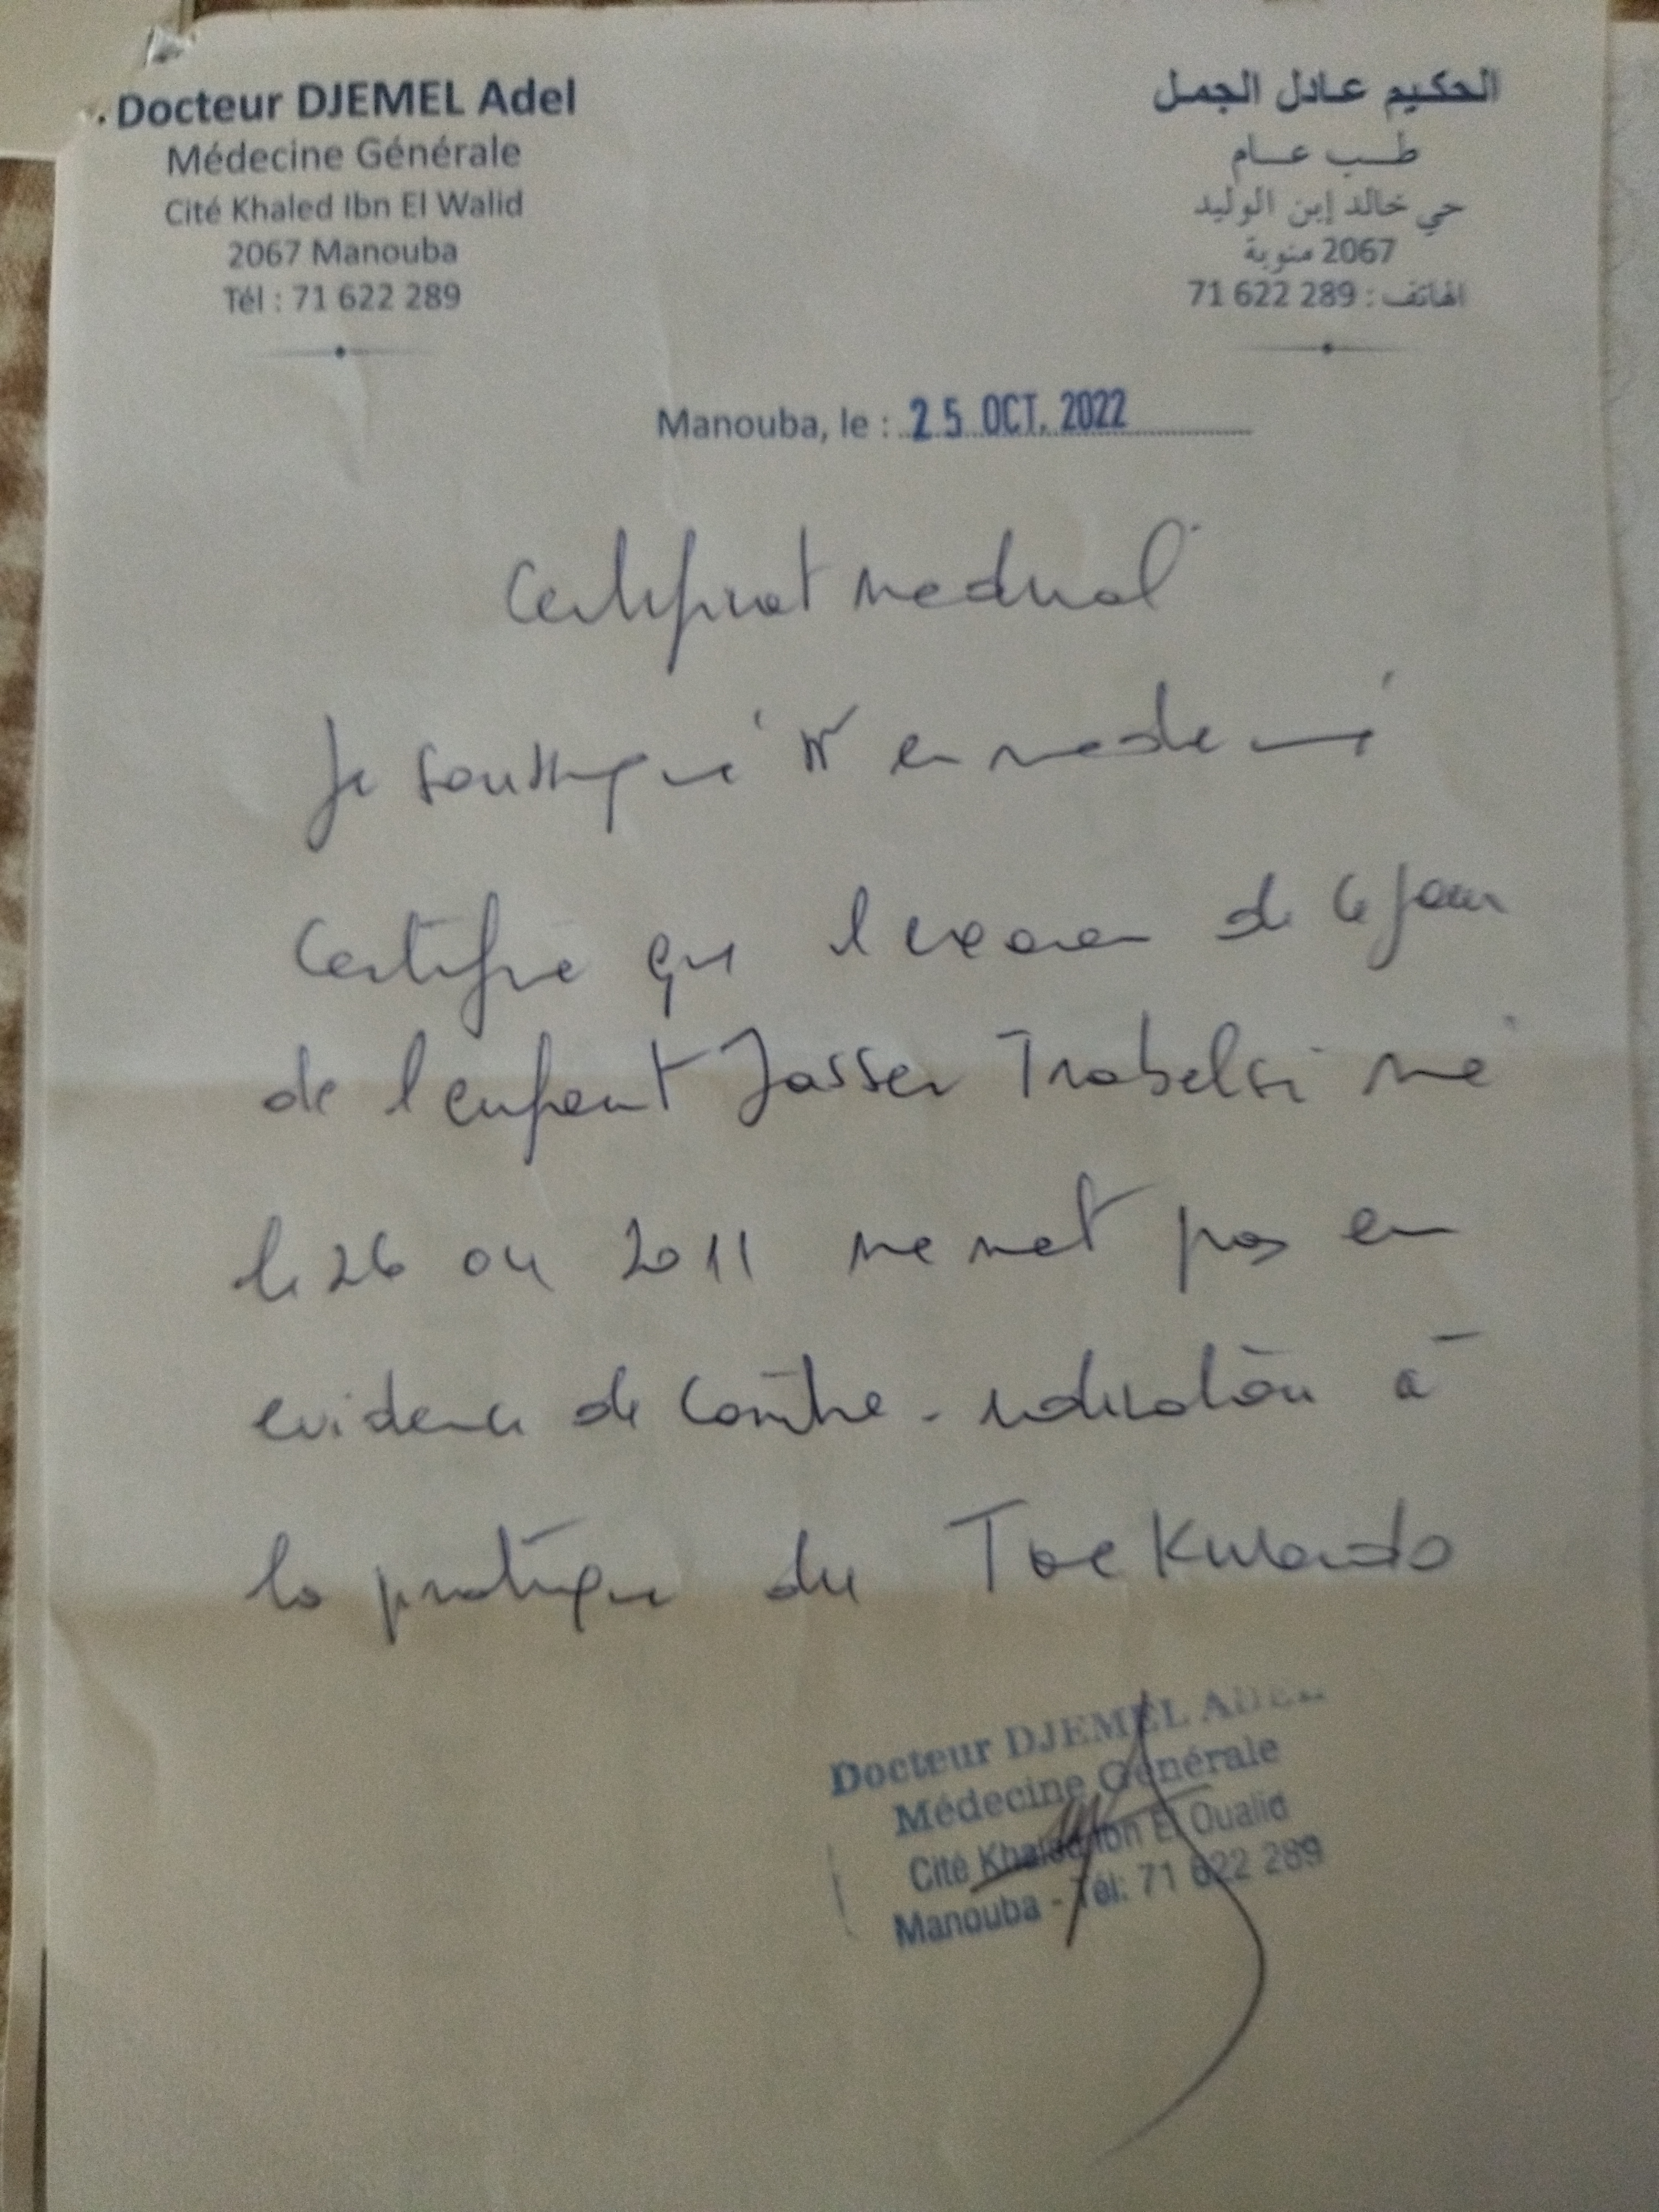 Docteur DJEMEL Adel
Médecine Générale
Cité Khaled Ibn El Walid
2067 Manouba
Tél : 71 622 289
الحكيم عادل الجمل
طب عام
حي خالد إبن الوليد
2067 منوبة
الهاتف : 71 622 289
Manouba, le : 25 OCT. 2022
Certificat medical
Je soussigné Dr en medecine
Certifie que l examen de ce jour
de l enfant Jasser Trabelsi né
le 26 04 2011 ne met pas en
evidence de contre-indication à
la pratique du TaeKwando
Docteur DJEMEL ADEL
Médecine Générale
Cité Khaled Ibn El Oualid
Manouba - Tél: 71 622 289